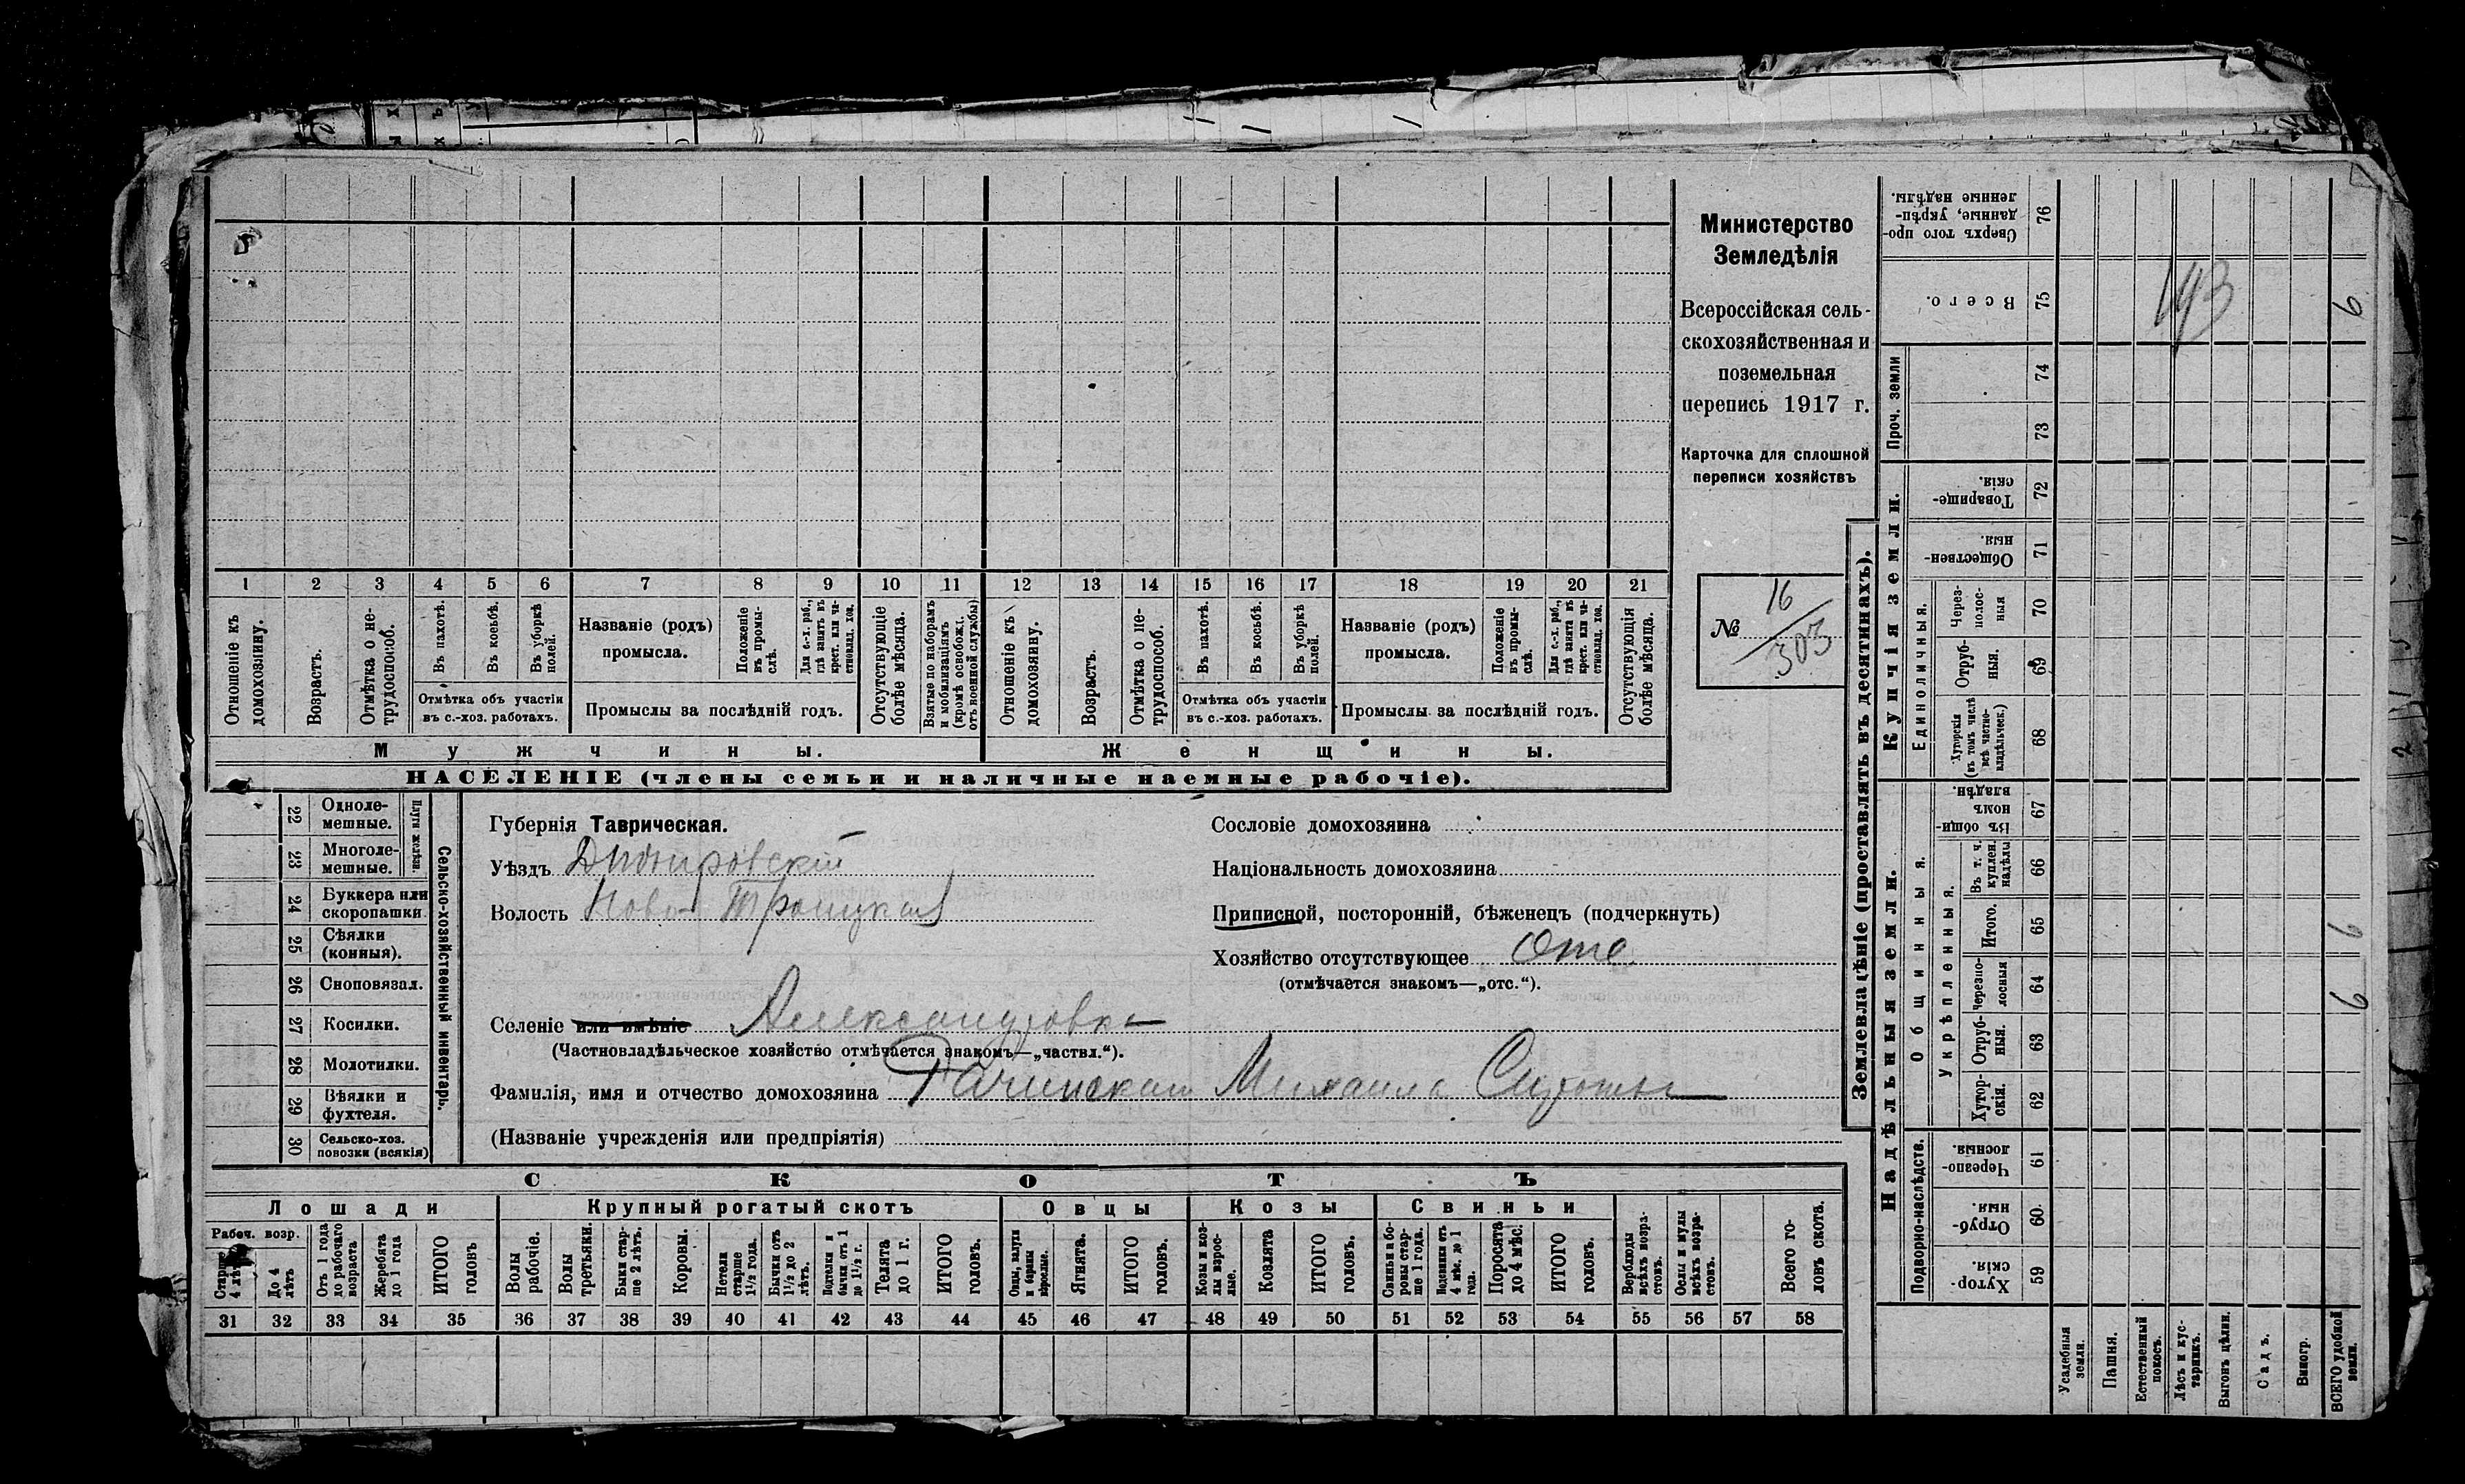 Министерство
Земледѣлія
Всероссійская сель-
скохозяйственная и
поземельная
перепись 1917 г.
Карточка для сплошной
переписи хозяйствъ
№ 16/303
1 2 3 4 5 6 7 8 9 10 11 12 13 14 15 16 17 18 19 20 21
Отношеніе къ домохозяину.
Возрастъ.
Отмѣтка о не-трудоспособ.
Въ пахотѣ.
Въ косьбѣ.
Въ уборкѣ полей.
Отмѣтка объ участіи въ с.-хоз. работахъ.
Названіе (родъ) промысла.
Положеніе въ промы-слѣ.
Для с.-х. раб., гдѣ занятъ въ крест. или ча-стновлад. хоз.
Промыслы за послѣдній годъ.
Отсутствующіе болѣе мѣсяца.
Взятые по наборамъ и мобилизаціямъ (кромѣ освобожд. отъ военной службы)
Отношеніе къ домохозяину.
Возрастъ.
Отмѣтка о не-трудоспособ.
Въ пахотѣ.
Въ косьбѣ.
Въ уборкѣ полей.
Отмѣтка объ участіи въ с.-хоз. работахъ.
Названіе (родъ) промысла.
Положеніе въ промы-слѣ.
Для с.-х. раб., гдѣ занята въ крест. или ча-стновлад. хоз.
Промыслы за послѣдній годъ.
Отсутствующія болѣе мѣсяца.
Мужчины.
Женщины.
НАСЕЛЕНІЕ (члены семьи и наличные наемные рабочіе).
22 Одноле-мешные.
23 Многоле-мешные.
Плуги желѣзн.
24 Буккера или скоропашки.
25 Сѣялки (конныя).
26 Сноповязал.
27 Косилки.
28 Молотилки.
29 Вѣялки и фухтеля.
30 Сельско-хоз. повозки (всякія)
Сельско-хозяйственный инвентарь.
Губернія Таврическая.
Уѣздъ Днѣпровскій
Волость Ново-Троицкая
Селеніе или имѣніе Александровка
(Частновладѣльческое хозяйство отмѣчается знакомъ—„частвл.“).
Фамилія, имя и отчество домохозяина Михаила
(Названіе учрежденія или предпріятія)
Сословіе домохозяина
Національность домохозяина
Приписной, посторонній, бѣженецъ (подчеркнуть)
Хозяйство отсутствующее Отс
(отмѣчается знакомъ—„отс.“).
СКОТЪ
Лошади
Крупный рогатый скотъ
Овцы
Козы
Свиньи
Рабоч. возр.
Старше 4 лѣтъ
До 4 лѣтъ
Отъ 1 года до рабочаго возраста
Жеребята до 1 года
ИТОГО головъ
Волы рабочіе.
Волы третьяки.
Быки стар-ше 2 лѣтъ.
Коровы.
Нетели старше 1½ года.
Бычки отъ 1½ до 2 лѣтъ.
Подтелки и бычки отъ 1 до 1½ г.
Телята до 1 г.
ИТОГО головъ.
Овцы, валухи и бараны взрослые.
Ягнята.
ИТОГО головъ.
Козы и коз-лы взрос-лые.
Козлята
ИТОГО головъ.
Свиньи и бо-ровы стар-ше 1 года.
Подсвинки отъ 4 мѣс. до 1 года.
Поросята до 4 мѣс.
ИТОГО головъ.
Верблюды всѣхъ возра-стовъ.
Ослы и мулы всѣхъ возра-стовъ.
Всего го-ловъ скота.
31 32 33 34 35 36 37 38 39 40 41 42 43 44 45 46 47 48 49 50 51 52 53 54 55 56 57 58
Землевладѣніе (проставлять въ десятинахъ).
Купчія земли.
Надѣльныя земли.
Сверхъ того про-данные, укрѣп-ленные надѣлы. 76
Всего. 75
Проч. земли
74
73
Товарище-скія. 72
Обществен-ныя. 71
Единоличныя.
Через-полос-ныя 70
Отруб-ныя. 69
Хуторскія (въ томъ числѣ всѣ частно-владѣльческ.) 68
Общинныя.
Въ общи-номъ владѣн. 67
Укрѣпленныя.
Въ т. ч. куплен. надѣлы 66
Итого. 65
Черезпо-лосныя 64
Отруб-ныя. 63
Хутор-скія. 62
Подворно-наслѣдств.
Черезпо-лосныя. 61
Отруб-ныя. 60
Хутор-скія. 59
Усадебныя земли.
Пашня.
Естественный покосъ.
Лѣсъ и кус-тарникъ.
Выгонъ цѣлин.
Садъ.
Виногр.
ВСЕГО удобной земли.
193
6
6
6